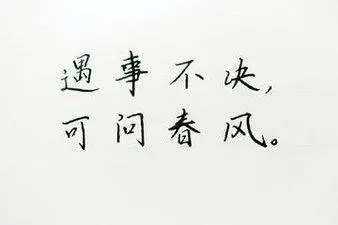 遇事不决，
可问春风。